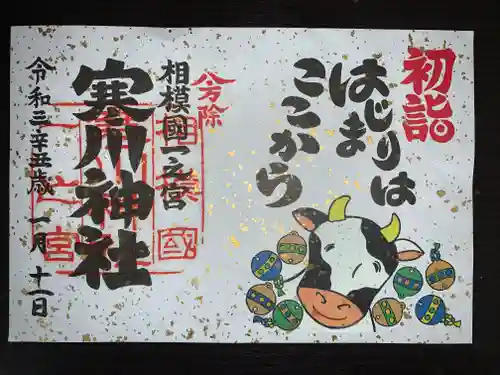 初詣
はじまりは
ここから
八方除
相模國一之宮
寒川神社
相模國一之宮
令和三辛丑歳 一月 十一日